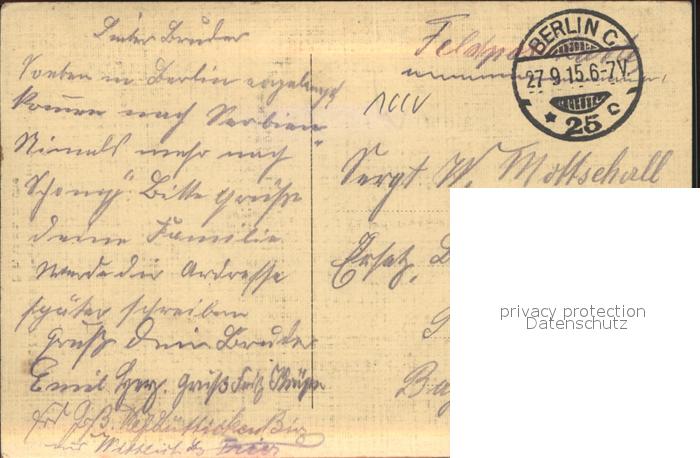 Lieber Bruder
Soeben in Berlin angelangt
kommen nach Serbien
Niemals mehr nach
Bitte grüße
deine Familie
werde dir Ardresse
später schreiben
Gruß dein Bruder
Emil Herz. Gruß Fritz
aus Wittlich bz Trier
Feldpostkarte
BERLIN C
27.9.15.6-7V.
* 25 c
Sergt W. Mottschall
Ersatz.
privacy protection
Datenschutz